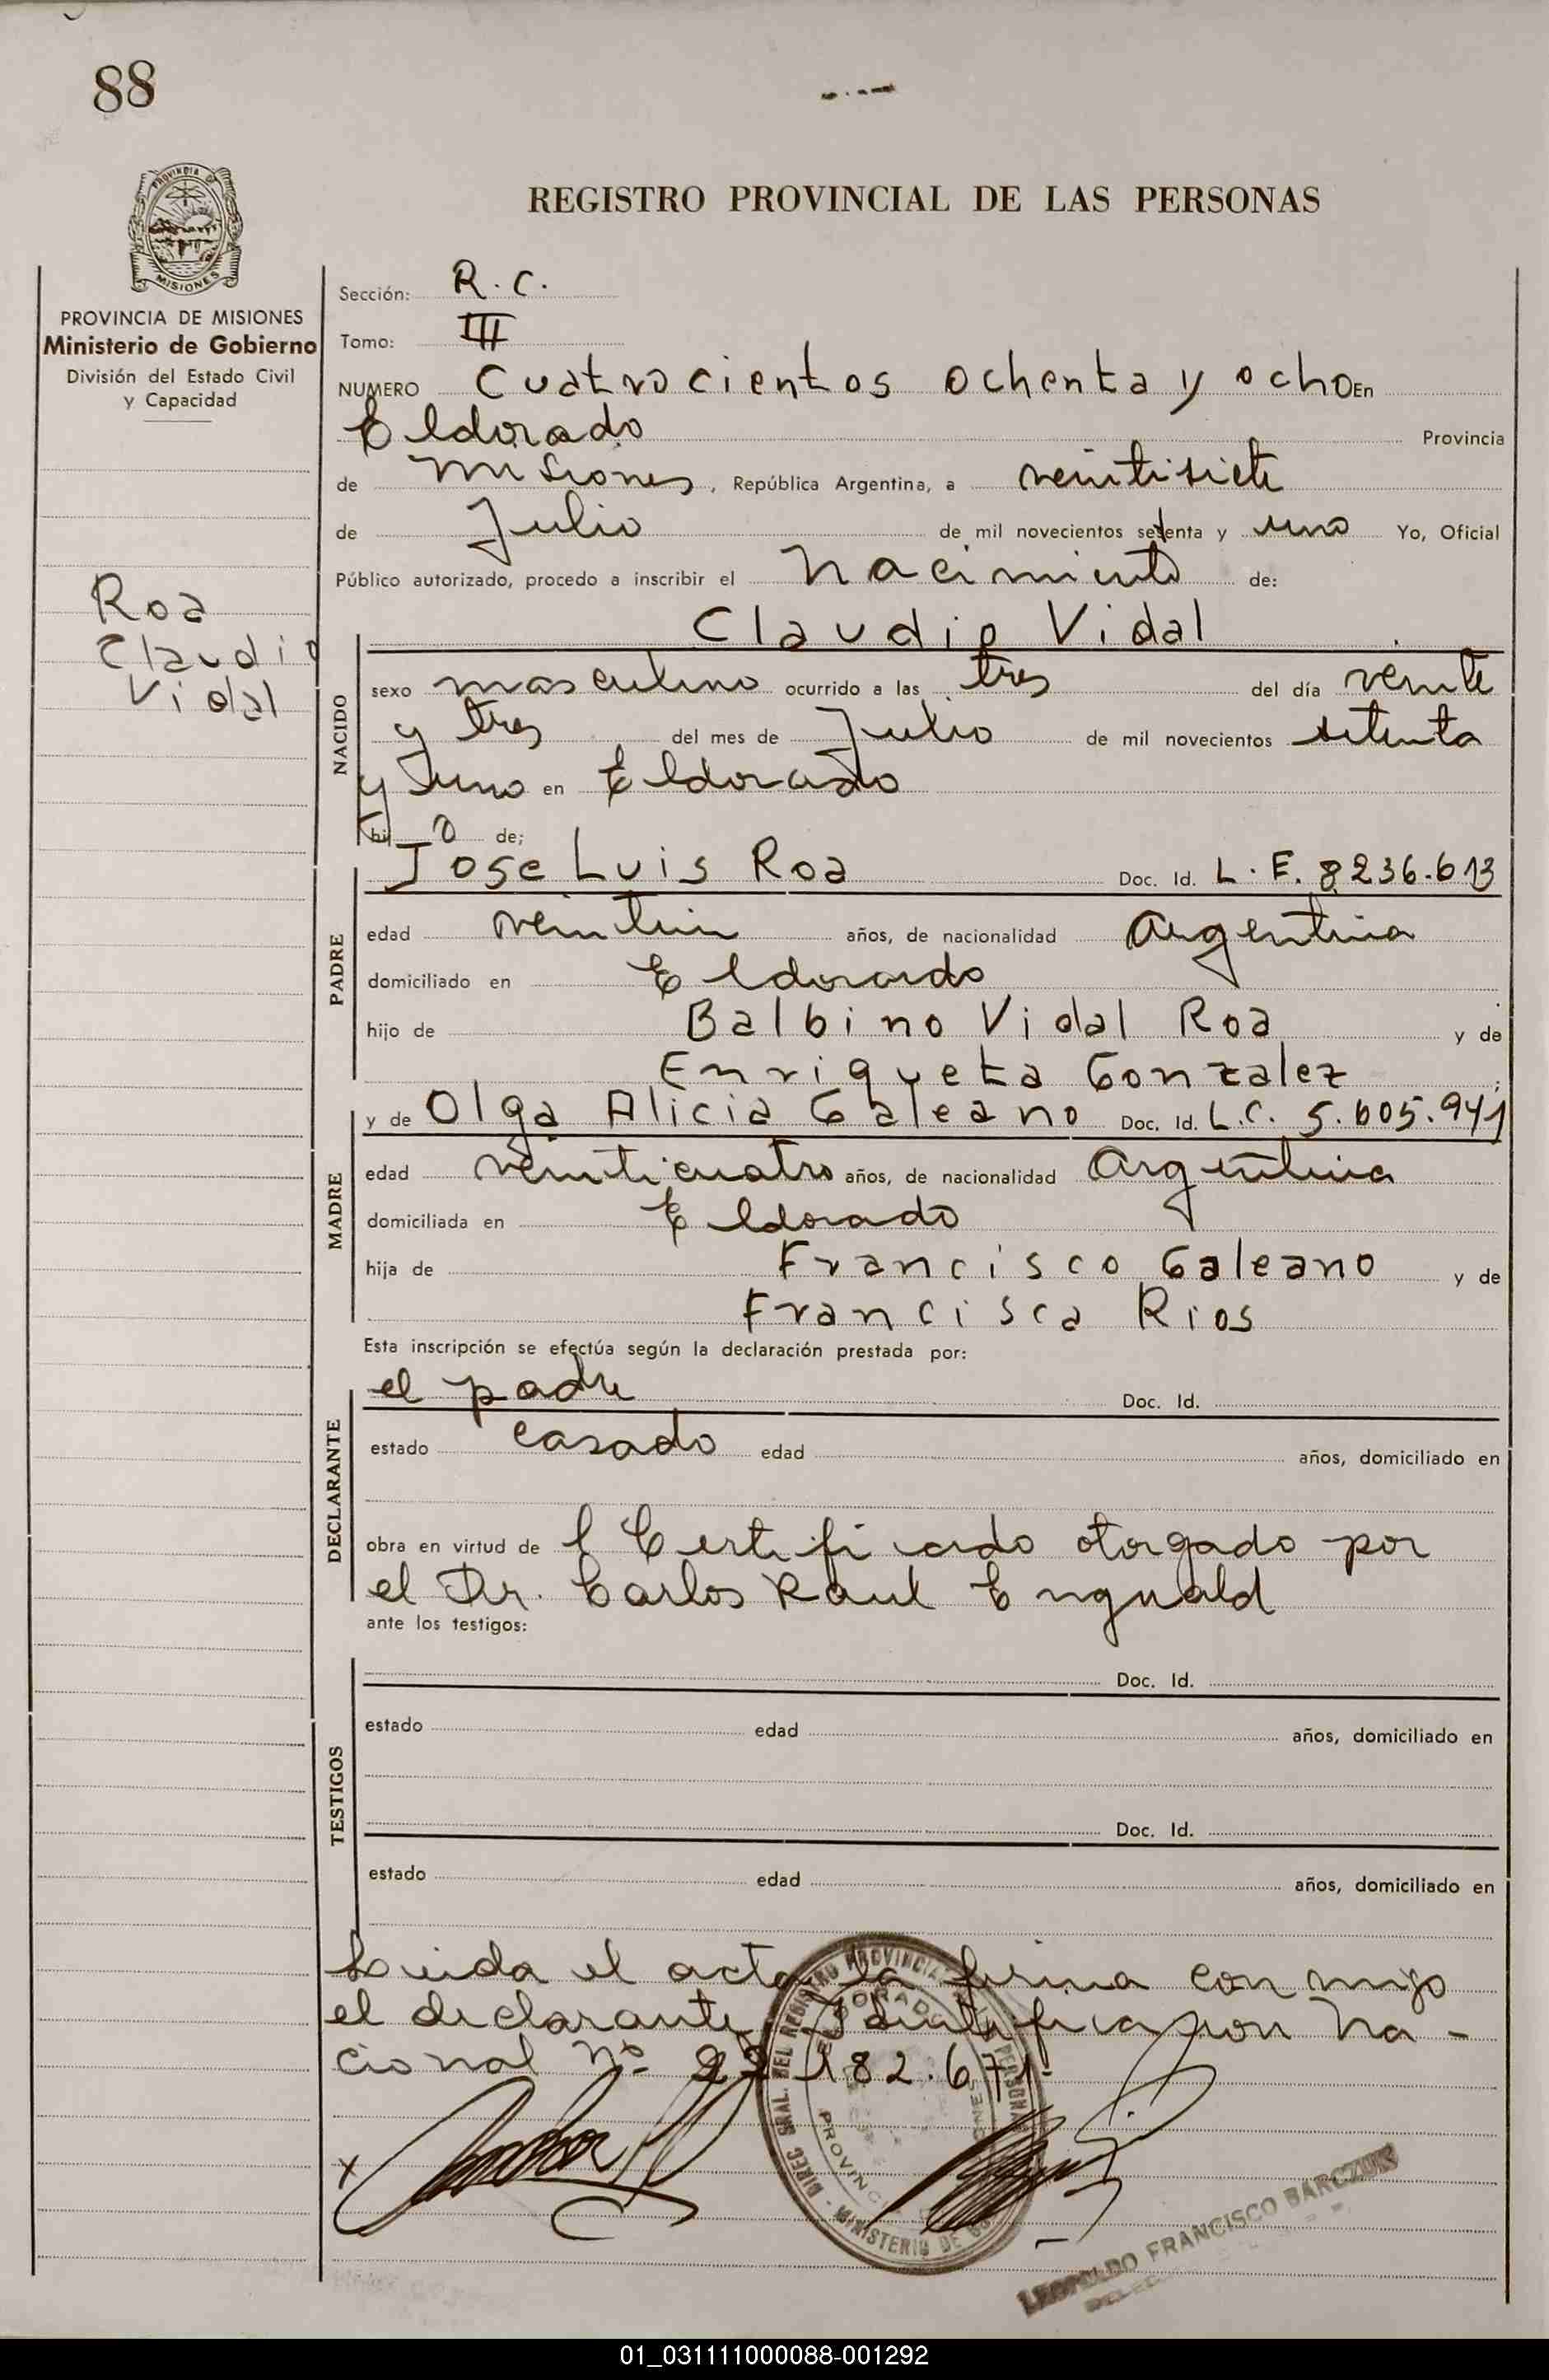 88
PROVINCIA DE
MISIONES
REGISTRO PROVINCIAL DE LAS PERSONAS
PROVINCIA DE MISIONES
Ministerio de Gobierno
División del Estado Civil
y Capacidad
Roa
Claudio
Vidal
Sección: R. C.
Tomo: III
NUMERO Cuatrocientos ochenta y ocho En
Eldorado Provincia
de Misiones, República Argentina, a veintisiete
de Julio de mil novecientos setenta y uno Yo, Oficial
Público autorizado, procedo a inscribir el Nacimiento de:
Claudio Vidal
NACIDO
sexo masculino ocurrido a las tres del día veinte
y tres del mes de Julio de mil novecientos setenta
y uno en Eldorado
hijo de;
PADRE
Jose Luis Roa Doc. Id. L. E. 8236.613
edad años, de nacionalidad Argentina
domiciliado en Eldorado
hijo de Balbino Vidal Roa y de
Enriqueta Gonzalez;
MADRE
y de Olga Alicia Galeano Doc. Id. L.C. 5.605.941
edad veinticuatro años, de nacionalidad Argentina
domiciliada en Eldorado
hija de Francisco Galeano y de
Francisca Rios
Esta inscripción se efectúa según la declaración prestada por:
DECLARANTE
el padre Doc. Id.
estado casado edad años, domiciliado en
obra en virtud de l Certificado otorgado por
el Dr. Carlos Raul
ante los testigos:
TESTIGOS
Doc. Id.
estado edad años, domiciliado en
Doc. Id.
estado edad años, domiciliado en
Leida el acta la firma con migo
el declarante Identificacion Na-
cional Nº 22 182.671-
DIREC. GRAL. DEL REGISTRO PROVINCIAL PERSONAS
ELDORADO
MINISTERIO DE
LEOPOLDO FRANCISCO BARCZUK
01_031111000088-001292